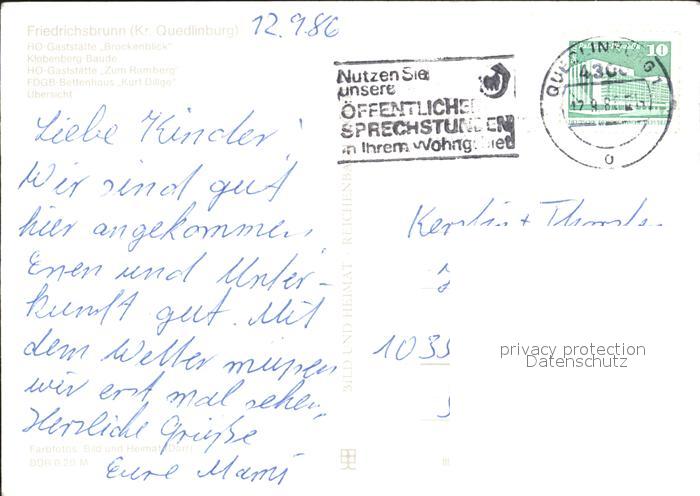 Friedrichsbrunn (Kr. Quedlinburg)
HO-Gaststätte „Brockenblick"
Klobenberg Baude
HO-Gaststätte „Zum Ramberg"
FDGB-Bettenhaus „Kurt Dillge"
Übersicht
12.9.86
Liebe Kinder!
Wir sind gut
hier angekommen.
Essen und Unter-
kunft gut. Mit
dem Wetter müssen
wir erst mal sehen.
Herzliche Grüße
Eure Mami
Farbfotos: Bild und Heimat (Darr)
DDR 0.20 M
BILD UND HEIMAT · REICHENBACH
Nutzen Sie
unsere
ÖFFENTLICHEN
SPRECHSTUNDEN
in Ihrem Wohngebiet
QUEDLINBURG
4300
12.9.86
10
Kerstin + Thorsten
1035
privacy protection
Datenschutz